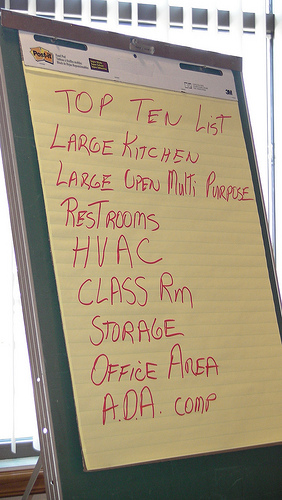 Post-it
3M
TOP TEN LIST
LARGE KITCHEN
LARGE OPEN MULTI PURPOSE
RESTROOMS
HVAC
CLASS Rm
STORAGE
OFFICE AREA
A.D.A. COMP